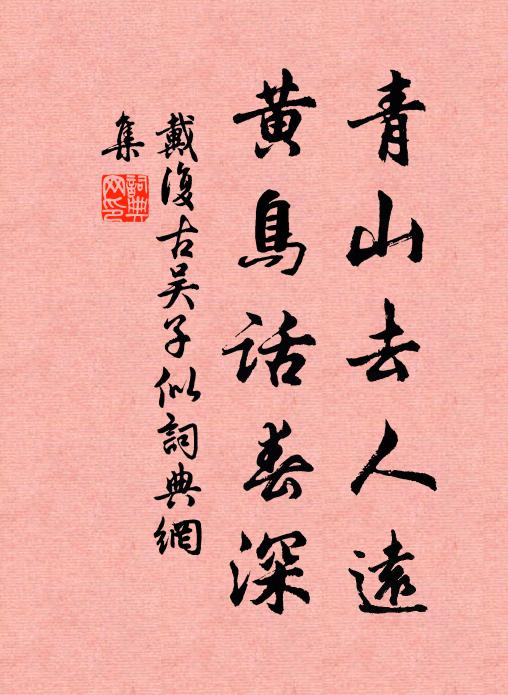 青山去人遠
黄鳥話春深
戴復古吴子似詞典網
集
詞典网印